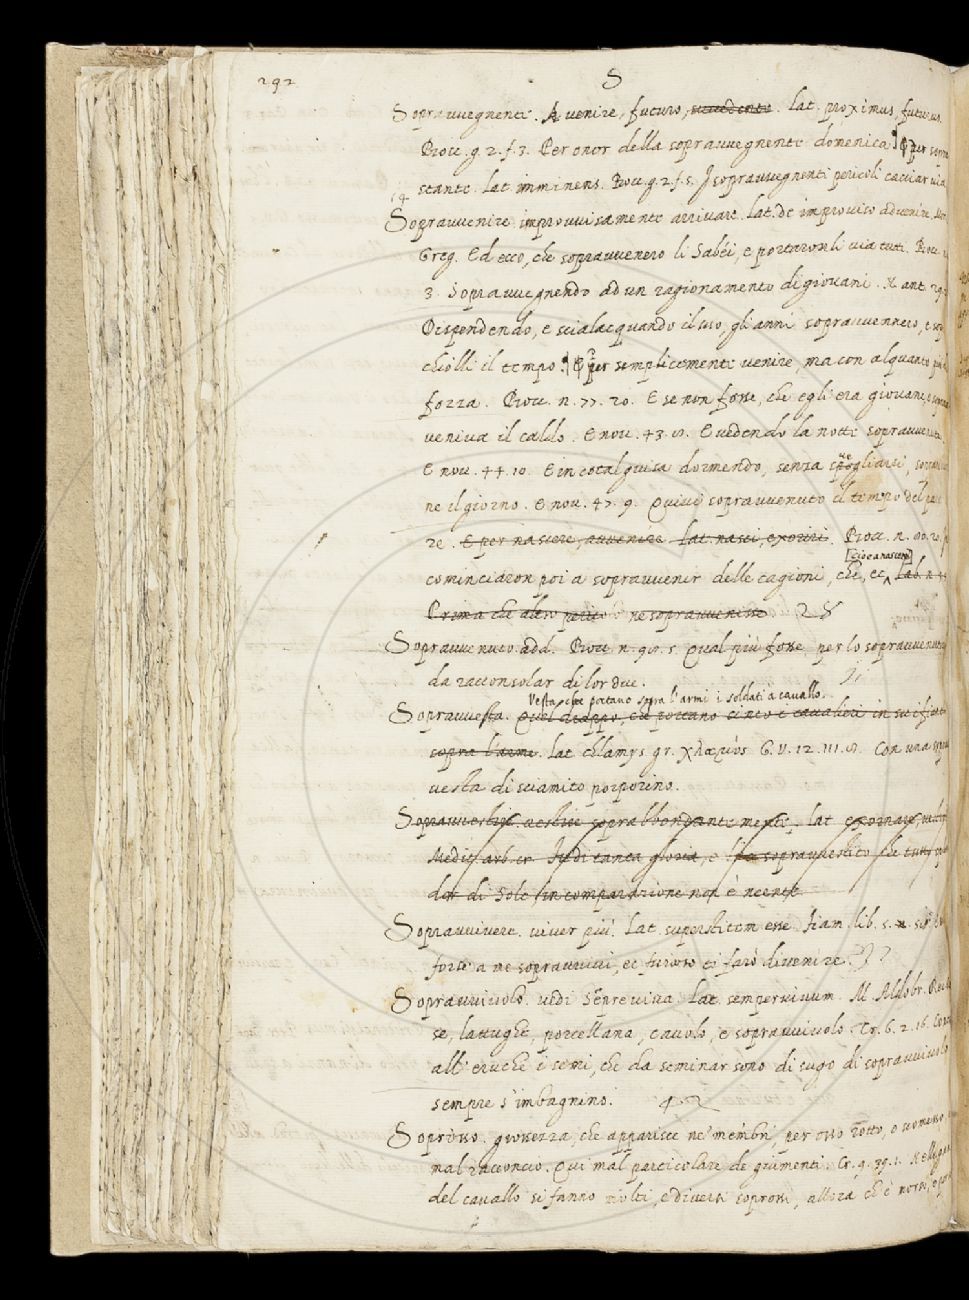 292
S
Sopravvegnente. A venire, futuro, succedente. lat. proximus, futurus.
Bocc. g. 2. f. 3. Per onor della sopravvegnente domenica per sopra
stante. lat. imminens. Bocc. g. 2. f. 5. I sopravvegnenti pericoli cacciar via
Sopravvenire improvvisamente arrivare. lat. de improviso advenire.
Greg. Ed ecco, che sopravvenero li Sabéi, e portaronli via tutti. Bocc.
3. Sopravvegnendo ad un ragionamento di giovani. N. ant.
Dispendendo, e scialacquando il suo, gli anni sopravvennero, e
il tempo. per semplicemente venire, ma con alquanto più di
forza. Bocc. n. 77. 20. E se non fosse, che egli era giovane, e soprav
veniva il caldo. E nov. 43. Evedendo la notte sopravvenuta
E nov. 44. 10. E in cotal guisa dormendo, senza svegliarsi, sopravven
ne il giorno. E nov. 47. 9. Quivi sopravvenuto il tempo del parto
re. E per nascere, avvenire. lat. nasci, exoriri. Bocc. n.
cioè a nascere
cominciaron poi a sopravvenir delle cagioni, che, ec. Lab. n.
Prima che altro pericolo ne sopravvenisse
Sopravvenuto. add. Bocc. n. Qual più fosse, per lo sopravvenuto
da racconsolar di lor due.
Vesta, che portano sopra l'armi i soldati a cavallo.
Sopravvesta. Quel drappo, che portano i cavalieri
sopra l'arme. lat. chlamys gr. χλαμύς G. V. 12. 111. Con una sopra
vesta di sciamito porporino.
Sopravvestire. vestire soprabbondantemente. lat. exornare,
Medit. arb. cr. tanta gloria, e sopravvestito che tutto
dor di Sole in comparazione non è neente
Sopravvivere. viver più. Lat. superstitem esse. fiam. lib. 5.
forse a me sopravvivi, ec furioso ti farò divenire.
Sopravvivolo. vedi Sempreviva. Lat. sempervivum. M. Aldobr.
se, lattughe, porcellana, cavolo, e sopravvivolo. Cr. 6. 2. 16.
all' eruche i semi, che da seminar sono di sugo di sopravvivolo
sempre s'imbagnino.
Soprosso. grossezza, che apparisce ne' membri, per osso rotto, o
mal racconcio. Qui mal particolare de giumenti. Cr. 9. 39. 1. Nelle
del cavallo si fanno molti, e diversi soprossi, allora ch'è